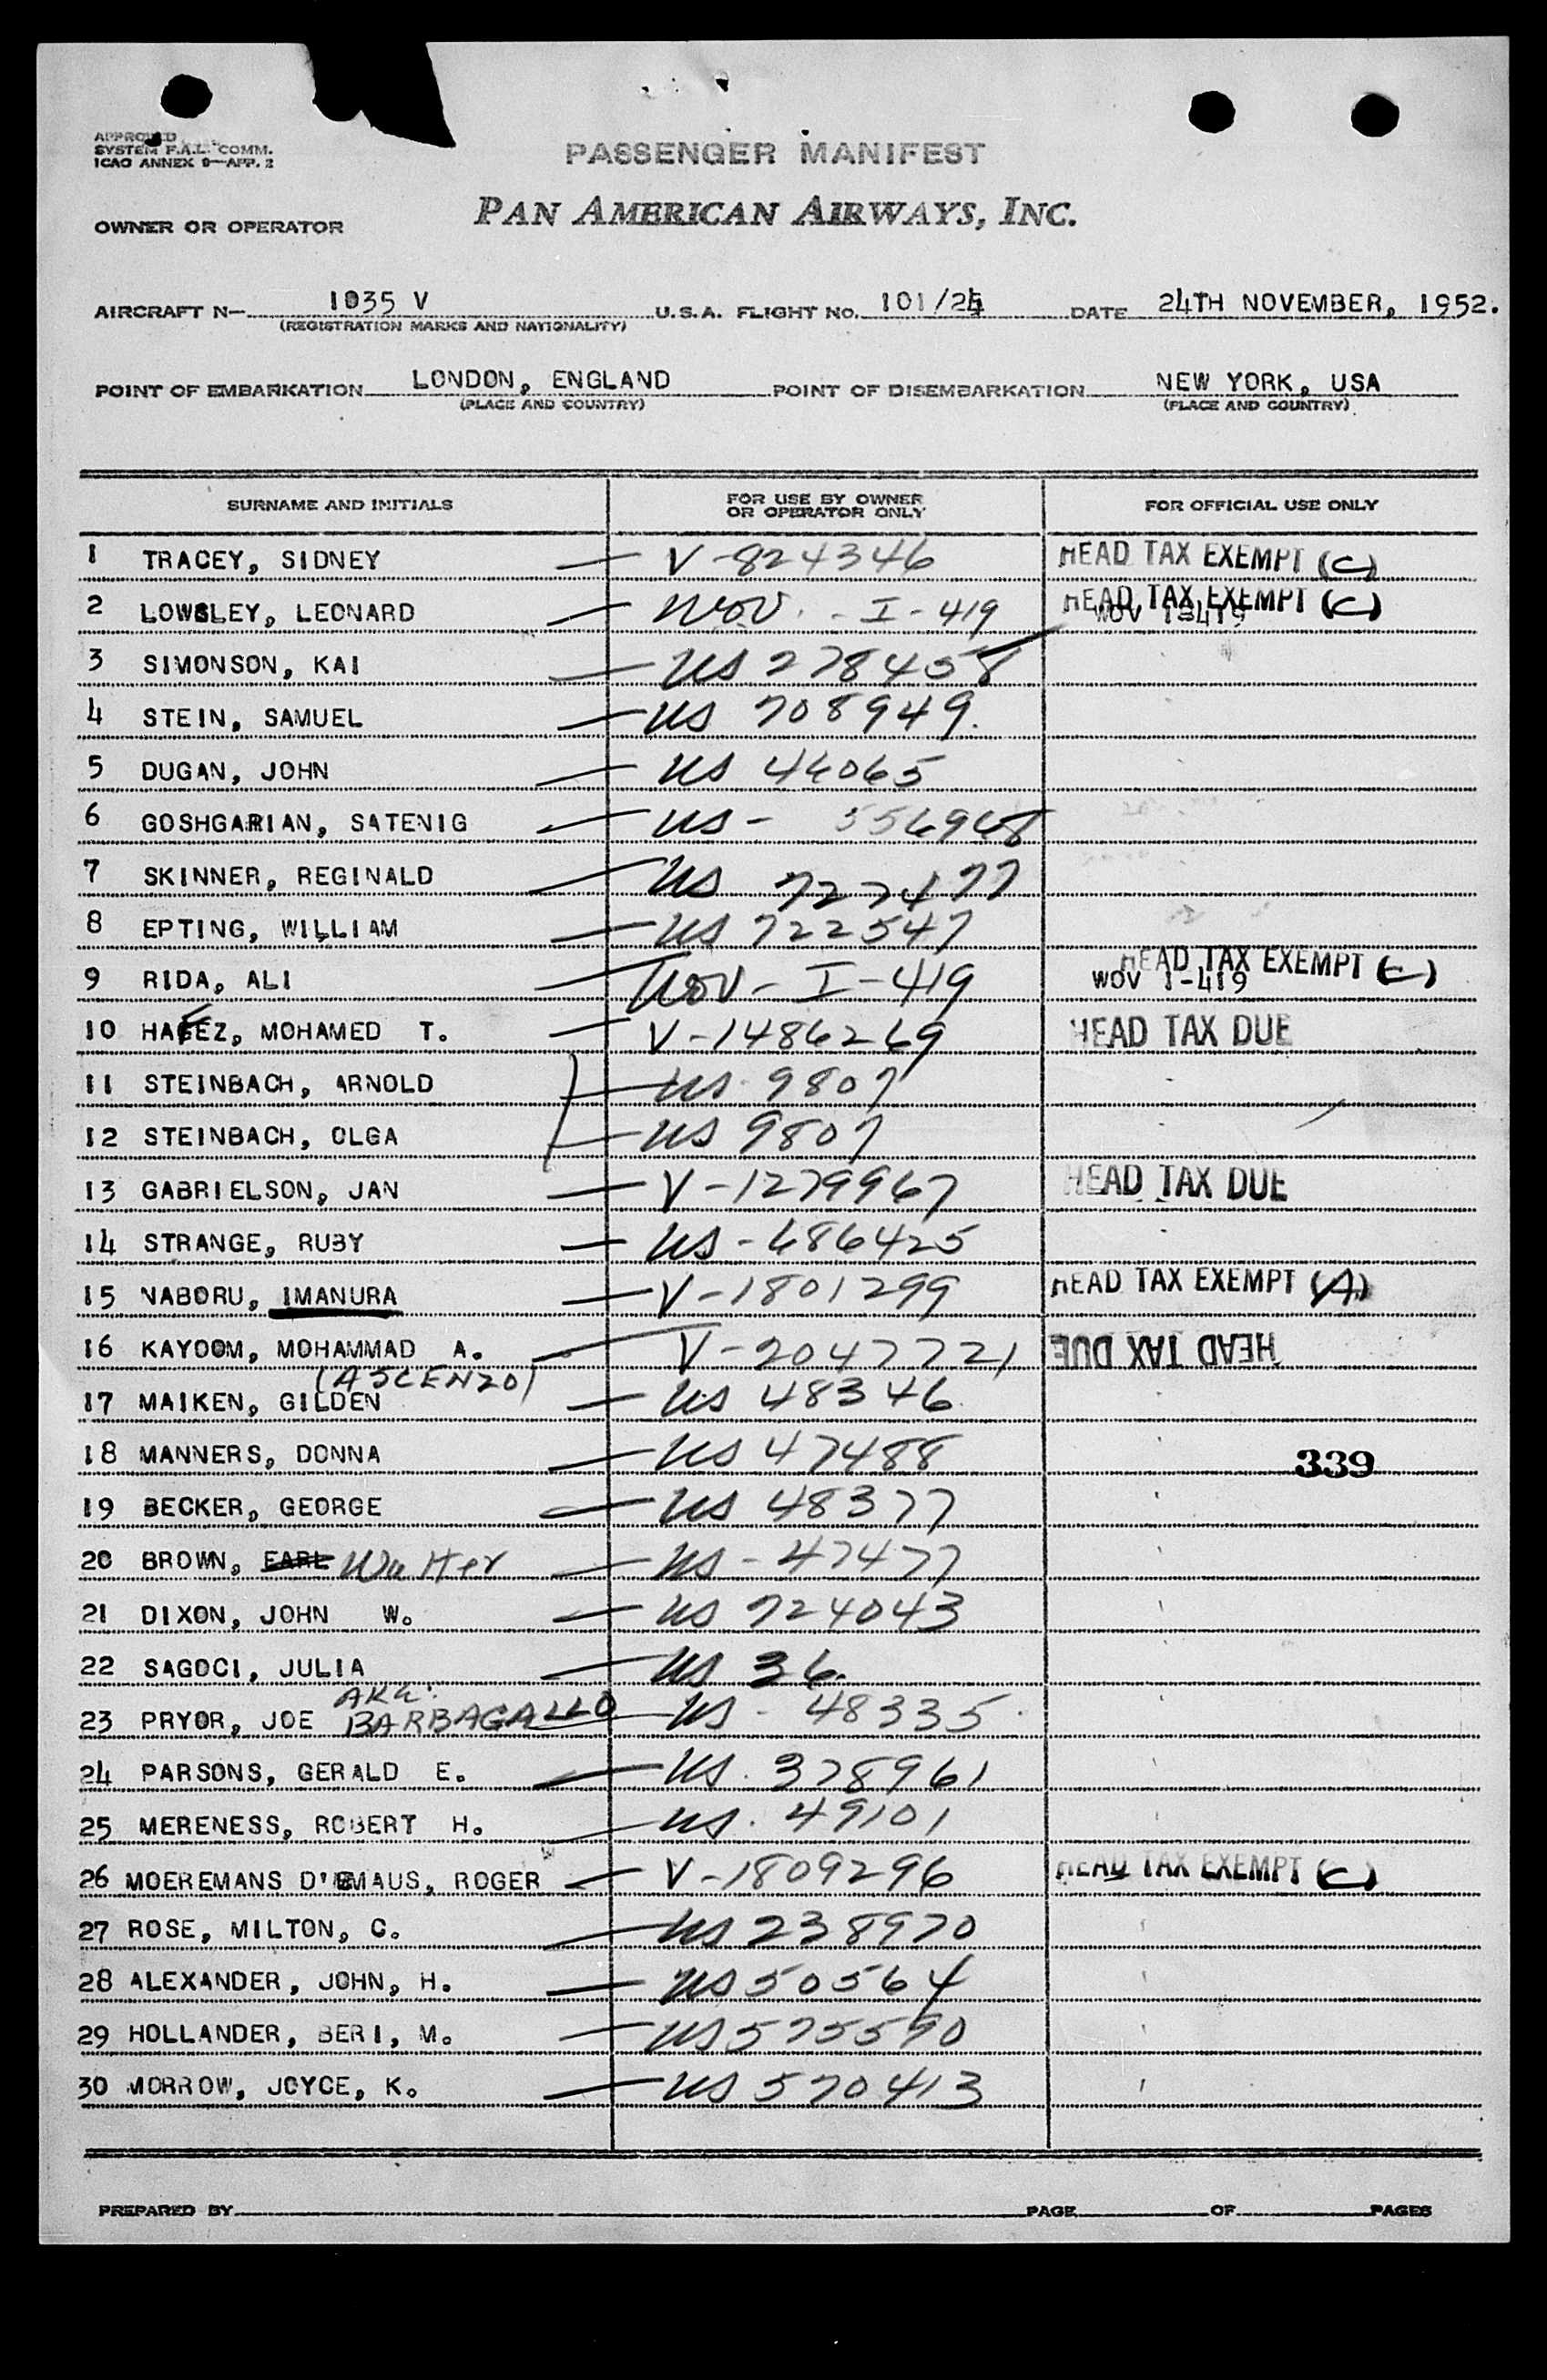 APPROVED
SYSTEM F.A.L. COMM.
ICAO ANNEX 9—APP. 2
PASSENGER MANIFEST
OWNER OR OPERATOR PAN AMERICAN AIRWAYS, INC.
AIRCRAFT N— 1035 V U.S.A. FLIGHT NO. 101/24 DATE 24TH NOVEMBER, 1952.
(REGISTRATION MARKS AND NATIONALITY)
POINT OF EMBARKATION LONDON, ENGLAND POINT OF DISEMBARKATION NEW YORK, USA
(PLACE AND COUNTRY) (PLACE AND COUNTRY)
SURNAME AND INITIALS FOR USE BY OWNER OR OPERATOR ONLY FOR OFFICIAL USE ONLY
1 TRACEY, SIDNEY — V-824346 HEAD TAX EXEMPT (C)
2 LOWSLEY, LEONARD — WOV. - I-419 HEAD TAX EXEMPT (C) WOV I-419
3 SIMONSON, KAI — US 278458
4 STEIN, SAMUEL — US 708949.
5 DUGAN, JOHN — US 46065
6 GOSHGARIAN, SATENIG — US - 556948
7 SKINNER, REGINALD — US 727477
8 EPTING, WILLIAM — US 722547
9 RIDA, ALI — WOV - I-419 HEAD TAX EXEMPT (C) WOV I-419
10 HAFEZ, MOHAMED T. — V-1486269 HEAD TAX DUE
11 STEINBACH, ARNOLD — US 9807
12 STEINBACH, OLGA — US 9807
13 GABRIELSON, JAN — V-1279967 HEAD TAX DUE
14 STRANGE, RUBY — US-686425
15 NABORU, IMANURA — V-1801299 HEAD TAX EXEMPT (A)
16 KAYOOM, MOHAMMAD A. — V-2047721 HEAD TAX DUE
(ASCENZO)
17 MAIKEN, GILDEN — US 48346
18 MANNERS, DONNA — US 47488 339
19 BECKER, GEORGE — US 48377
20 BROWN, EARL Walter — US-47477
21 DIXON, JOHN W. — US 724043
22 SAGOCI, JULIA — US 36.
23 PRYOR, JOE AKA: BARBAGALLO — US - 48335
24 PARSONS, GERALD E. — US. 378961
25 MERENESS, ROBERT H. — US. 49101
26 MOEREMANS D'EMAUS, ROGER — V-1809296 HEAD TAX EXEMPT (C)
27 ROSE, MILTON, C. — US 238970
28 ALEXANDER, JOHN, H. — US 50564
29 HOLLANDER, BERI, M. — US 575590
30 MORROW, JOYCE, K. — US 570413
PREPARED BY PAGE OF PAGES